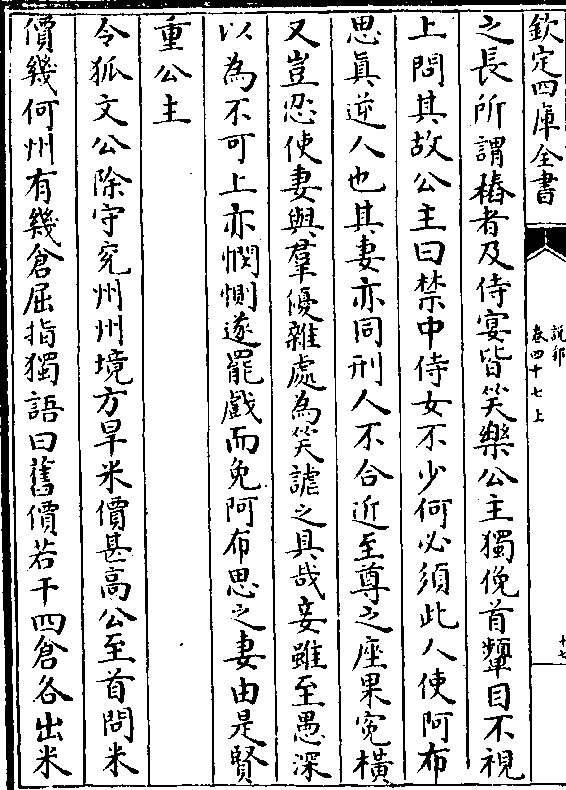 欽定四庫全書
說郛
卷四十七上
十七
之長所謂樁者及侍宴皆笑樂公主獨俛首顰目不視
上問其故公主曰禁中侍女不少何必須此人使阿布
思真逆人也其妻亦同刑人不合近至尊之座果寃橫
又豈忍使妻與羣優雜處為笑謔之具哉妾雖至愚深
以為不可上亦憫惻遂罷戲而免阿布思之妻由是賢
重公主
令狐文公除守兖州州境方旱米價甚高公至首問米
價幾何州有幾倉屈指獨語曰舊價若干四倉各出米